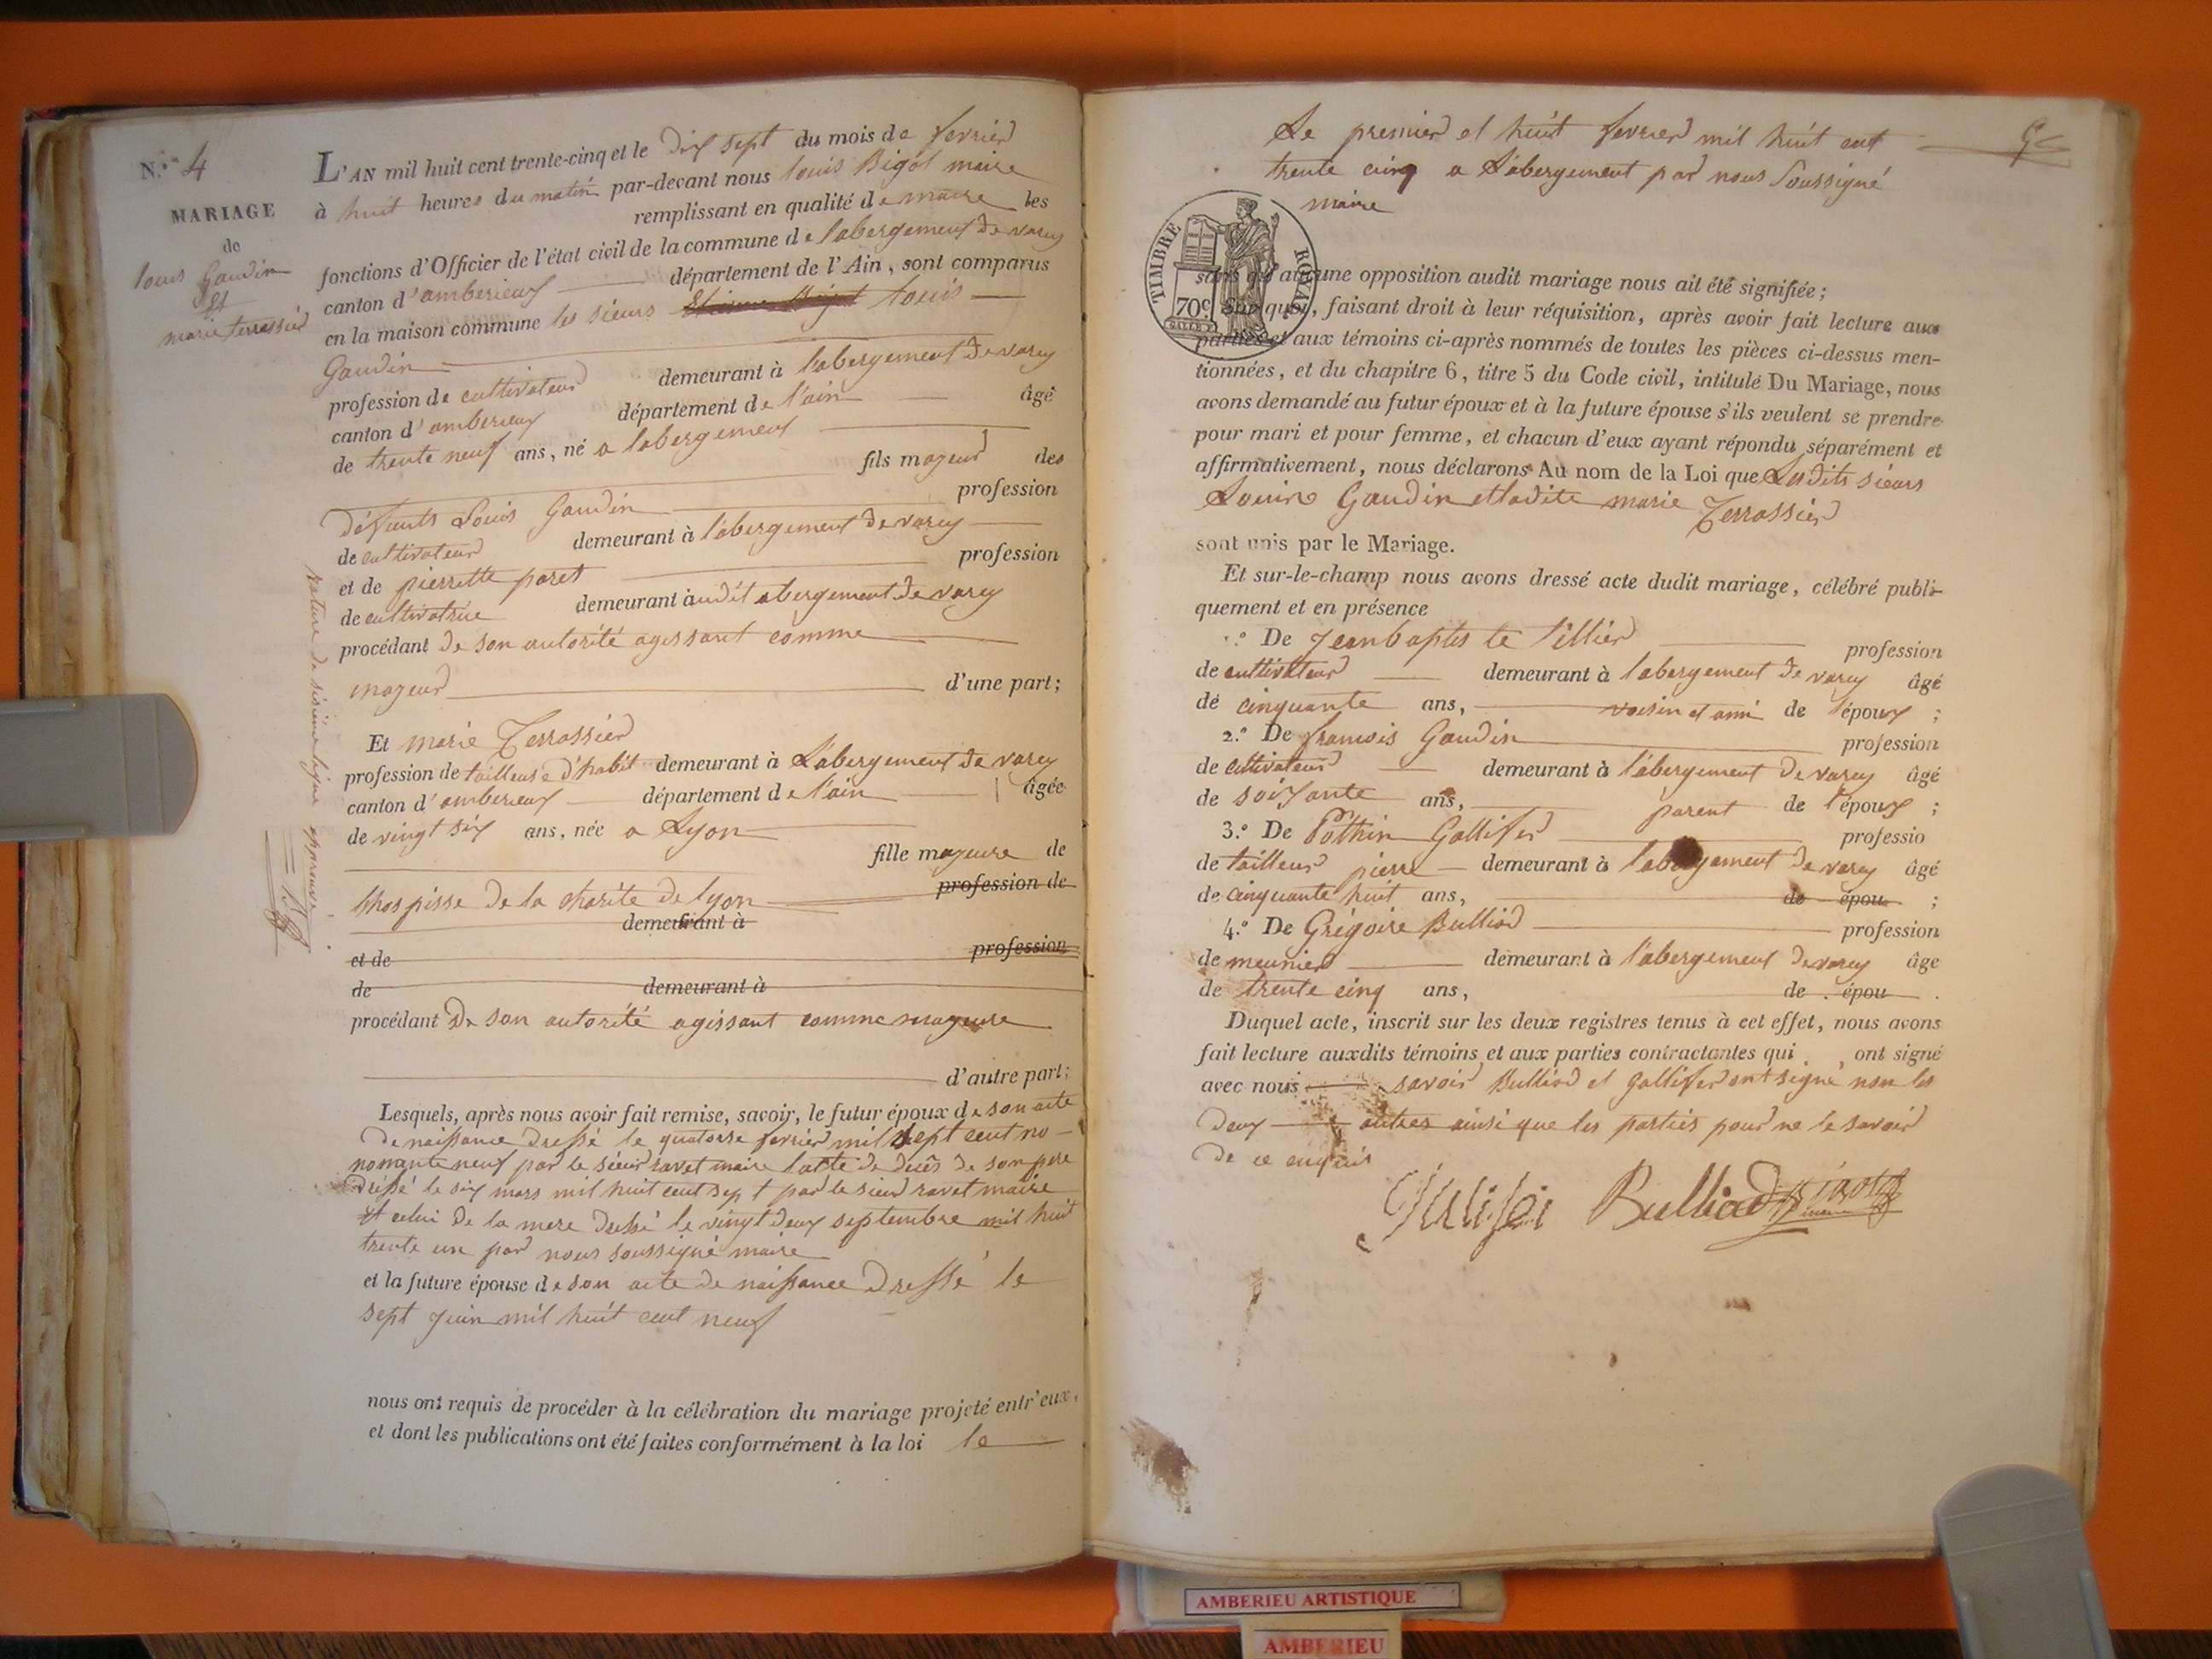 N.º 4
MARIAGE
de
louis Gaudin
Et
marie terrassier
L'AN mil huit cent trente-cinq et le dix sept du mois de fevrier
à huit heures du matin par-devant nous louis Bigot maire
remplissant en qualité de maire les
fonctions d'Officier de l'état civil de la commune de labergement de varey
canton d'amberieux département de l'Ain, sont comparus
en la maison commune les sieurs louis
Gaudin
profession de cultivateur demeurant à labergement de varey
canton d'amberieux département de l'ain âgé
de trente neuf ans, né a labergement
fils majeur des
défunts Louis Gaudin profession
de cultivateur demeurant à l'abergement de varey
et de pierrette paret profession
de cultivatrice demeurant audit abergement de varey
procédant de son autorité agissant comme
majeur d'une part;
Et marie Terrassier
profession de tailleuse d'habit demeurant à L'abergement de varey
canton d'amberieux département de l'ain âgée
de vingt six ans, née a Lyon
fille majeure de
lhospisse de la charité de lyon profession de
demeurant à
et de profession
de demeurant à
procédant de son autorité agissant comme majeure
d'autre part;
Lesquels, après nous avoir fait remise, savoir, le futur époux de son acte
de naissance dressé le quatorse fevrier mil sept cent no-
nonante neuf par le sieur ravet maire lacte de decês de son pere
dréssé le six mars mil huit cent sept par le sieur ravet maire
et celui de la mere dressé le vingt deux septembre mil huit
trente un par nous soussigné maire
et la future épouse de son acte de naissance dressé le
sept juin mil huit cent neuf
nous ont requis de procéder à la célébration du mariage projeté entr'eux,
et dont les publications ont été faites conformément à la loi le
rature de sixième ligne approuvé
Le premier et huit fevrier mil huit cent
trente cinq a L'abergement par nous soussigné
maire
TIMBRE ROYAL
70c
sans qu'aucune opposition audit mariage nous ait été signifiée;
Sur quoi, faisant droit à leur réquisition, après avoir fait lecture aux
parties et aux témoins ci-après nommés de toutes les pièces ci-dessus men-
tionnées, et du chapitre 6, titre 5 du Code civil, intitulé Du Mariage, nous
avons demandé au futur époux et à la future épouse s'ils veulent se prendre
pour mari et pour femme, et chacun d'eux ayant répondu séparément et
affirmativement, nous déclarons Au nom de la Loi que Lesdits sieurs
Louis Gaudin et ladite marie Terrassier
sont unis par le Mariage.
Et sur-le-champ nous avons dressé acte dudit mariage, célébré publi-
quement et en présence
1.º De Jean baptiste tillier profession
de cultivateur demeurant à labergement de varey âgé
de cinquante ans, voisin et ami de l'époux ;
2.º De francois Gaudin profession
de cultivateur demeurant à l'abergement de varey âgé
de soixante ans, parent de l'époux ;
3.º De Pothin Gallifer professio
de tailleur pierre demeurant à labergement de varey âgé
de cinquante huit ans, de épou ;
4.º De Grégoire Bulliod profession
de meunier demeurant à l'abergement de varey âge
de trente cinq ans, de épou .
Duquel acte, inscrit sur les deux registres tenus à cet effet, nous avons
fait lecture auxdits témoins et aux parties contractantes qui ont signé
avec nous savoir Bulliod et Gallifer ont signé non les
deux autres ainsi que les parties pour ne le savoir
de ce enquis
Bulliod Bigot
maire
AMBERIEU ARTISTIQUE
AMBERIEU